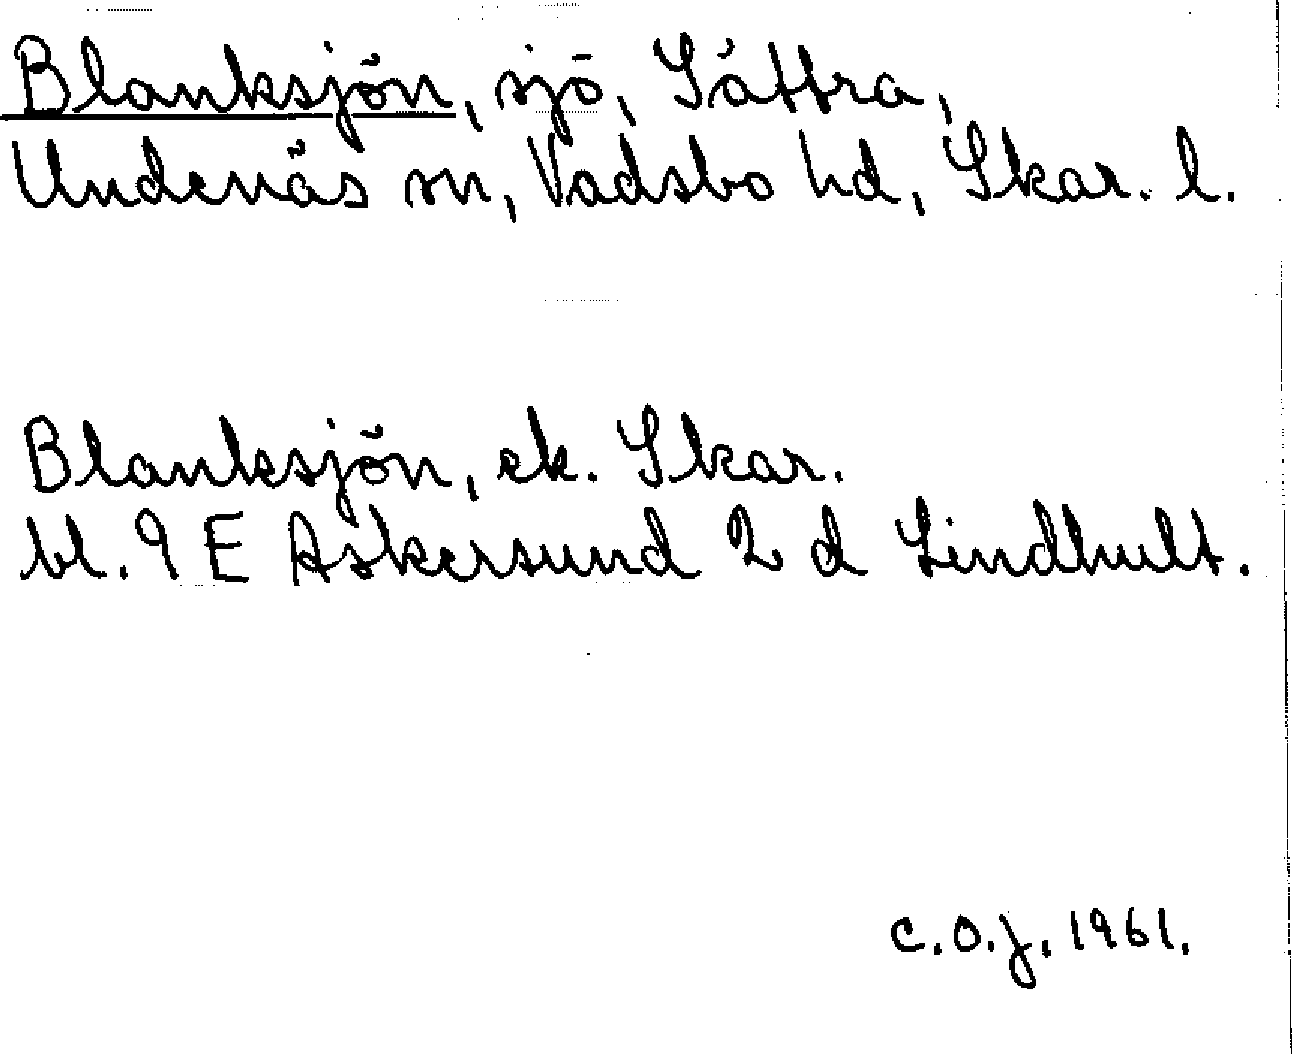 Blanksjön, sjö, Sätra,
Undenäs sn, Vadsbo hd, Skar. l.
Blanksjön, ek. Skar.
bl. 9 E Askersund 2 d Lindhult.
C.O.J. 1961.